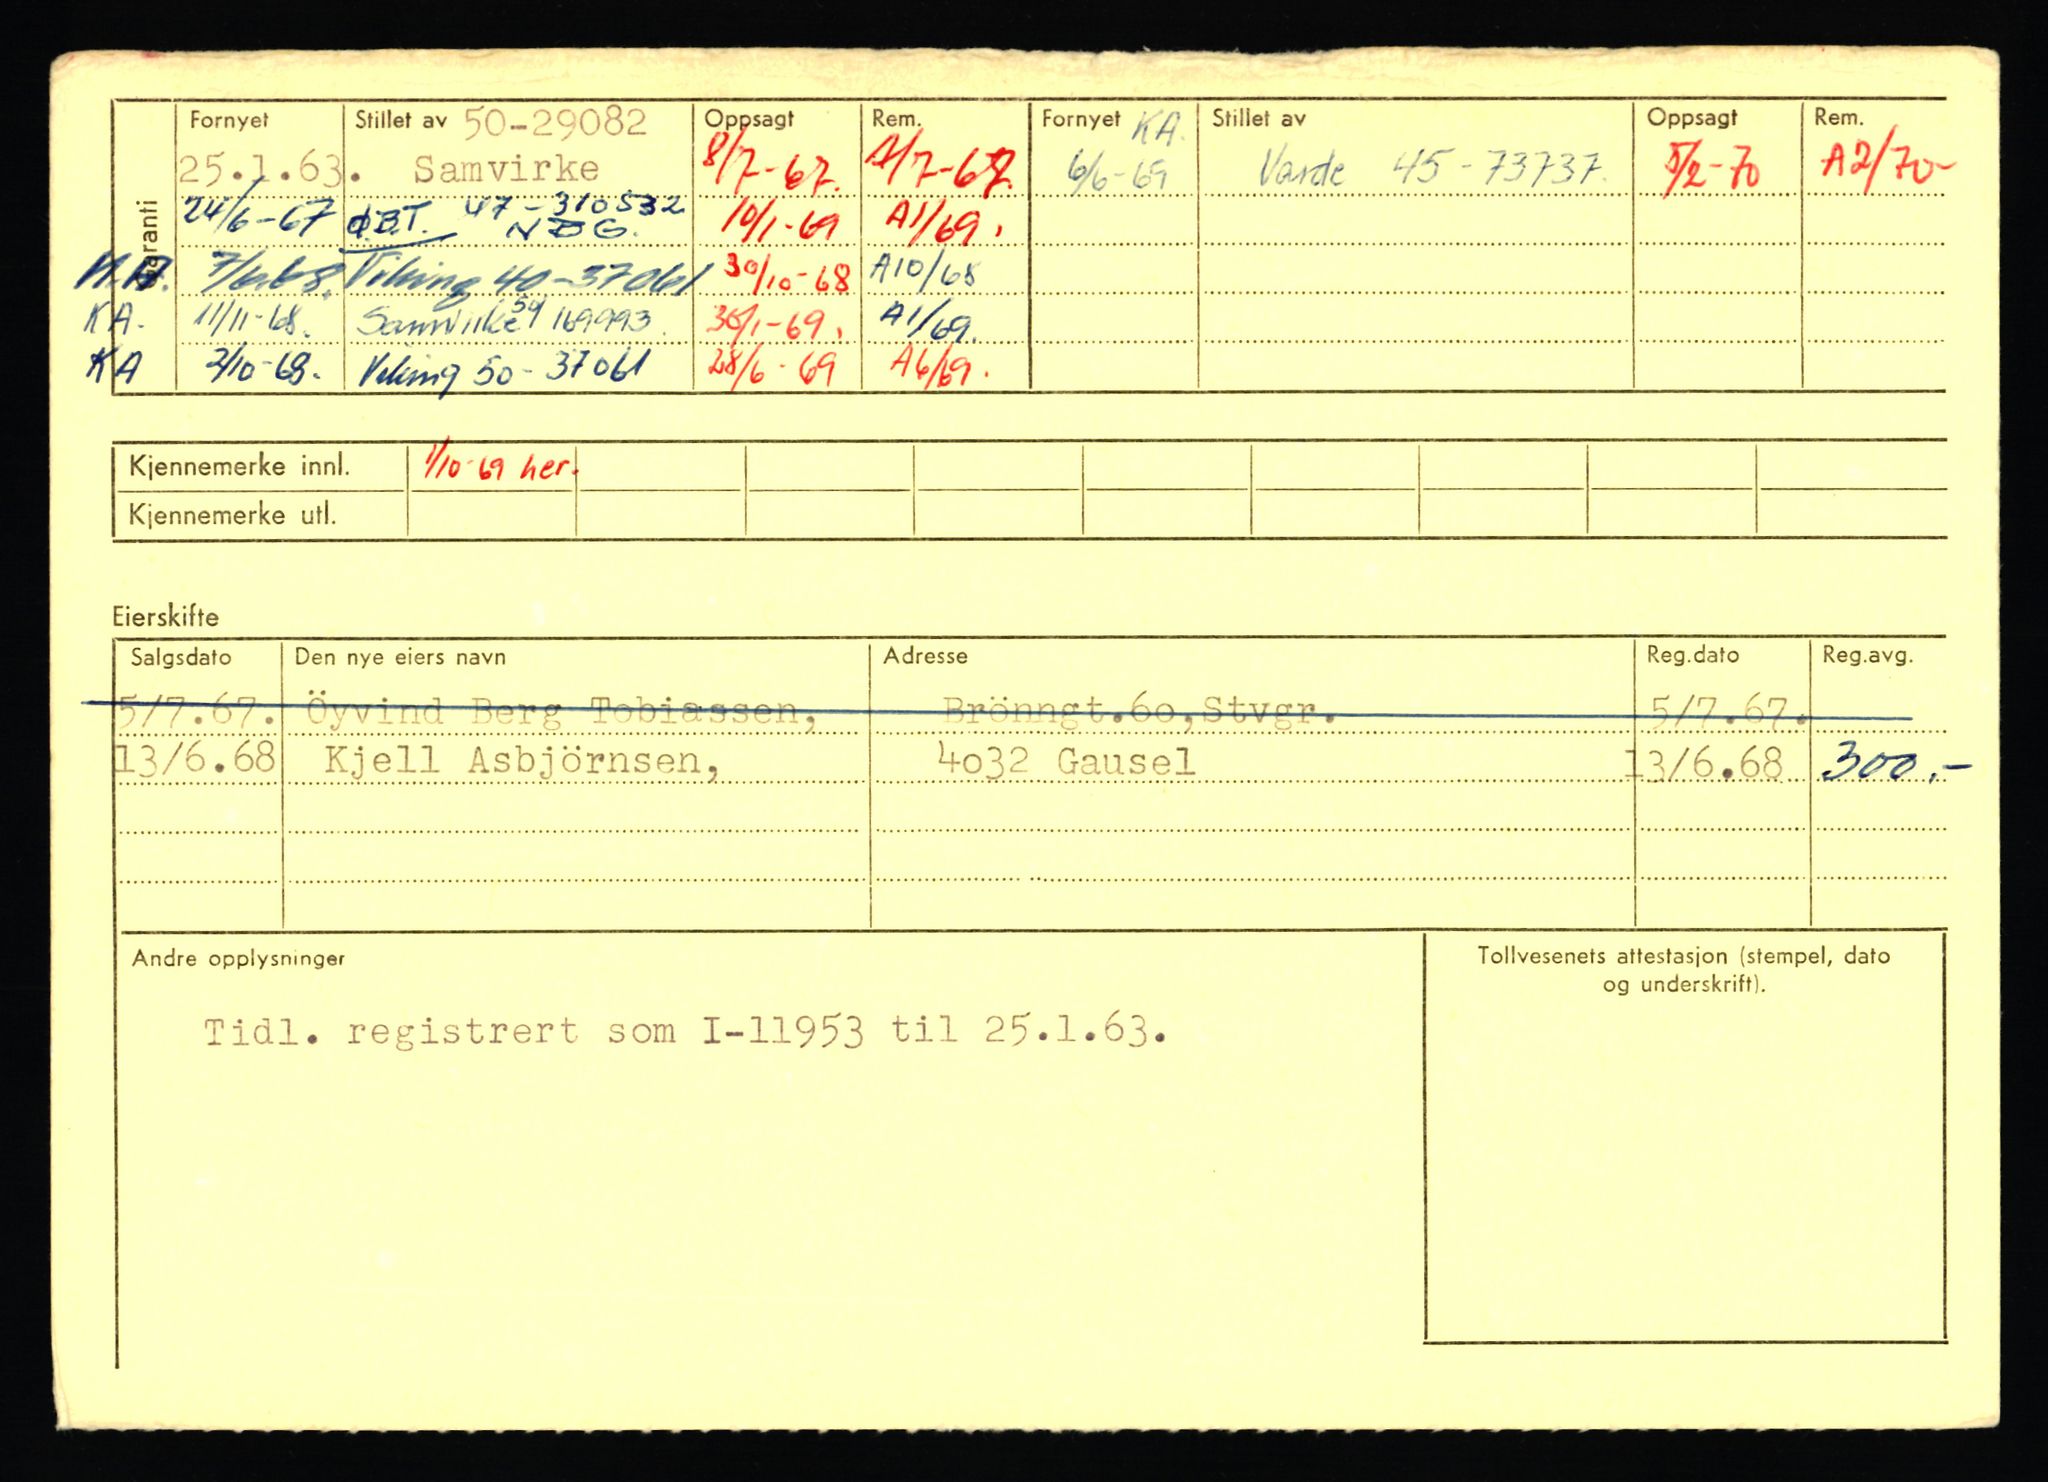 Garanti
Fornyet Stillet av 50-29082 Oppsagt Rem. Fornyet KA. Stillet av Oppsagt Rem.
25.1.63. Samvirke 8/7-67. 7/7-67. 6/6-69 Varde 45-73737. 5/2-70 A2/70-
24/6-67 Ø.B.T. 47-310532 NBG. 10/1-69 A1/69.
7/6.68. Viking 40-37061 30/10-68 A10/68
KA. 11/11-68. Samvirke 50 169993. 30/1-69. A1/69.
KA 2/10-68. Viking 50-37061 28/6-69 A6/69.
Kjennemerke innl. 1/10-69 her.
Kjennemerke utl.
Eierskifte
Salgsdato Den nye eiers navn Adresse Reg.dato Reg.avg.
5/7.67. Öyvind Berg Tobiassen, Brönngt.60,Stvgr. 5/7.67.
13/6.68 Kjell Asbjörnsen, 4032 Gausel 13/6.68 300.-
Andre opplysninger
Tollvesenets attestasjon (stempel, dato
og underskrift).
Tidl. registrert som I-11953 til 25.1.63.